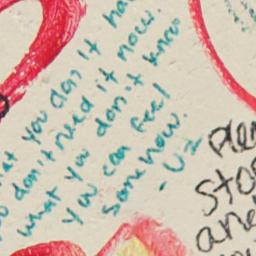 at you don't ha
o don't need it now.
what you don't know
you can feel
somehow.
- U2
Plea
Sto
and